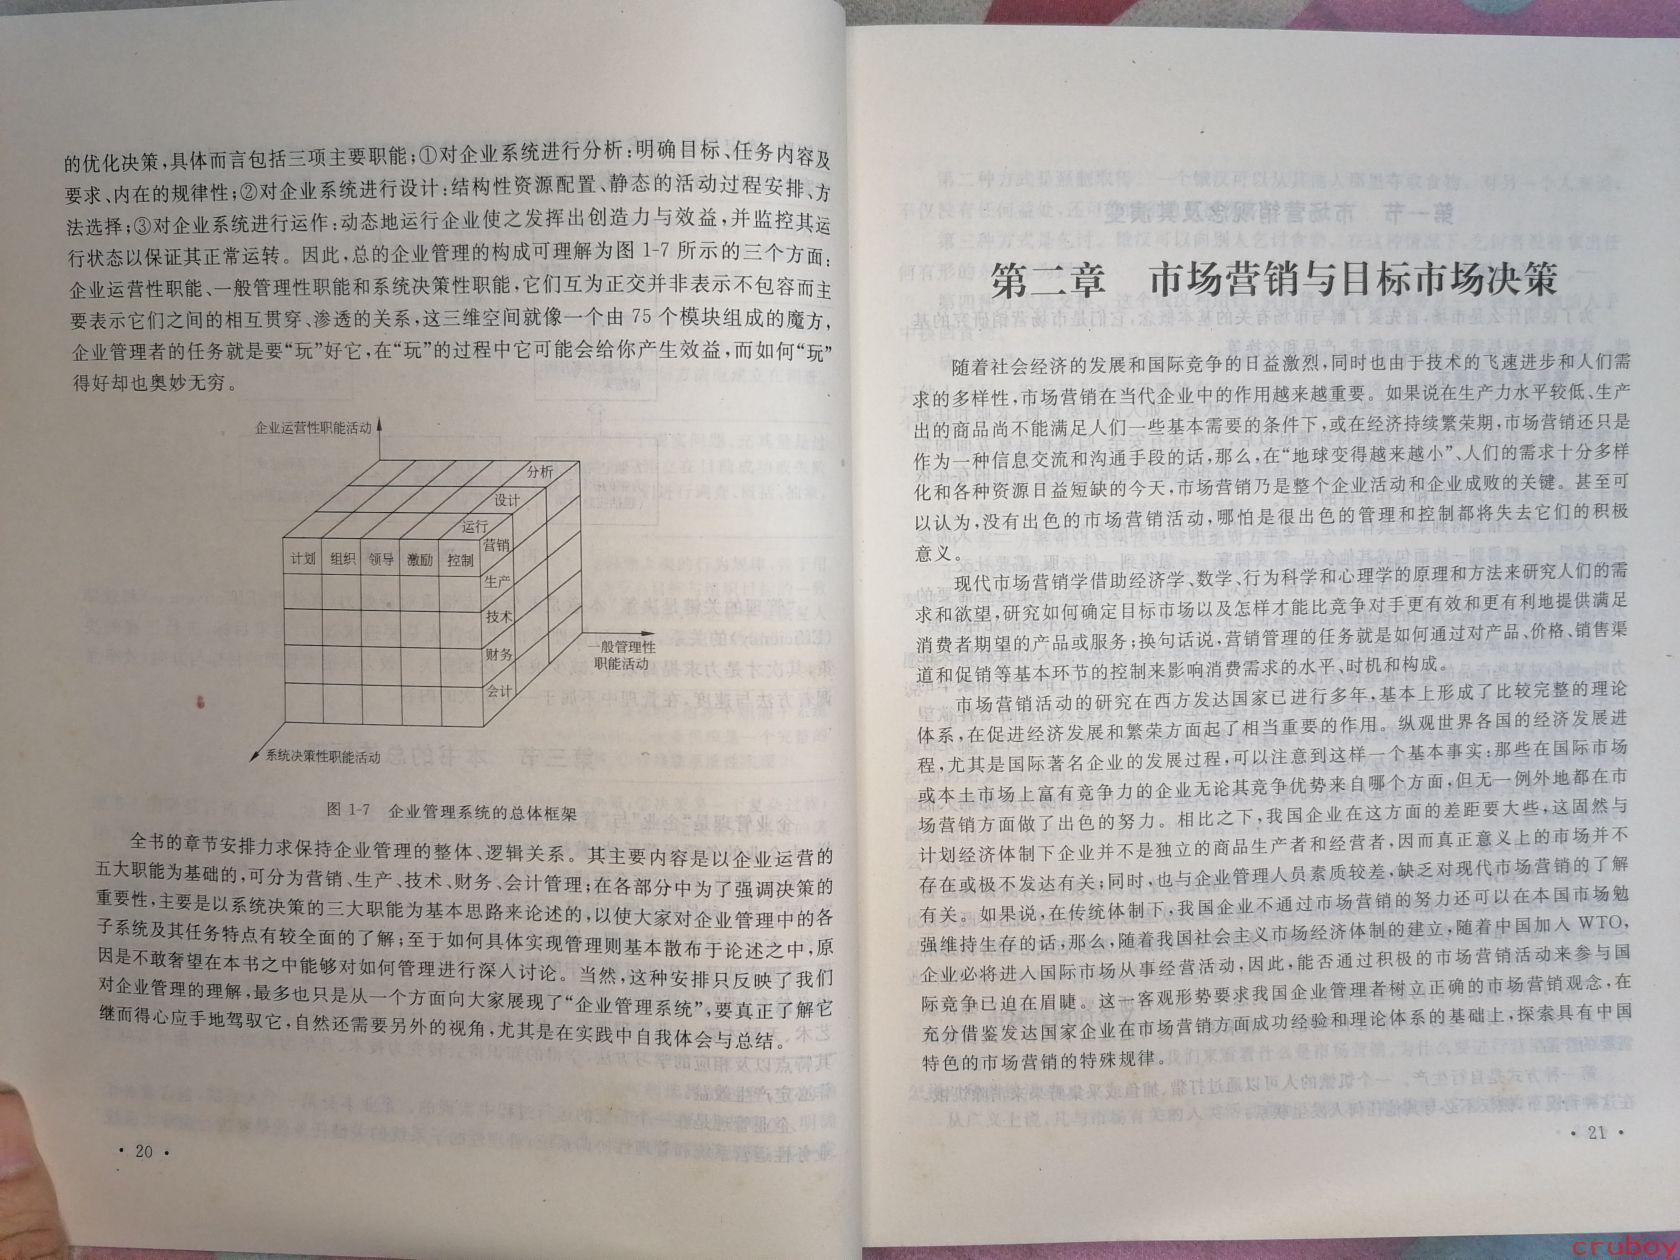 的优化决策,具体而言包括三项主要职能;①对企业系统进行分析:明确目标、任务内容及
要求、内在的规律性;②对企业系统进行设计:结构性资源配置、静态的活动过程安排、方
法选择;③对企业系统进行运作:动态地运行企业使之发挥出创造力与效益,并监控其运
行状态以保证其正常运转。因此,总的企业管理的构成可理解为图 1-7 所示的三个方面:
企业运营性职能、一般管理性职能和系统决策性职能,它们互为正交并非表示不包容而主
要表示它们之间的相互贯穿、渗透的关系,这三维空间就像一个由 75 个模块组成的魔方,
企业管理者的任务就是要“玩”好它,在“玩”的过程中它可能会给你产生效益,而如何“玩”
得好却也奥妙无穷。
企业运营性职能活动
分析
设计
运行
计划 组织 领导 激励 控制
营销
生产
技术
财务
会计
一般管理性
职能活动
系统决策性职能活动
图 1-7 企业管理系统的总体框架
全书的章节安排力求保持企业管理的整体、逻辑关系。其主要内容是以企业运营的
五大职能为基础的,可分为营销、生产、技术、财务、会计管理;在各部分中为了强调决策的
重要性,主要是以系统决策的三大职能为基本思路来论述的,以使大家对企业管理中的各
子系统及其任务特点有较全面的了解;至于如何具体实现管理则基本散布于论述之中,原
因是不敢奢望在本书之中能够对如何管理进行深人讨论。当然,这种安排只反映了我们
对企业管理的理解,最多也只是从一个方面向大家展现了“企业管理系统”,要真正了解它
继而得心应手地驾驭它,自然还需要另外的视角,尤其是在实践中自我体会与总结。
· 20 ·
第二章 市场营销与目标市场决策
随着社会经济的发展和国际竞争的日益激烈,同时也由于技术的飞速进步和人们需
求的多样性,市场营销在当代企业中的作用越来越重要。如果说在生产力水平较低、生产
出的商品尚不能满足人们一些基本需要的条件下,或在经济持续繁荣期,市场营销还只是
作为一种信息交流和沟通手段的话,那么,在“地球变得越来越小”、人们的需求十分多样
化和各种资源日益短缺的今天,市场营销乃是整个企业活动和企业成败的关键。甚至可
以认为,没有出色的市场营销活动,哪怕是很出色的管理和控制都将失去它们的积极
意义。
现代市场营销学借助经济学、数学、行为科学和心理学的原理和方法来研究人们的需
求和欲望,研究如何确定目标市场以及怎样才能比竞争对手更有效和更有利地提供满足
消费者期望的产品或服务;换句话说,营销管理的任务就是如何通过对产品、价格、销售渠
道和促销等基本环节的控制来影响消费需求的水平、时机和构成。
市场营销活动的研究在西方发达国家已进行多年,基本上形成了比较完整的理论
体系,在促进经济发展和繁荣方面起了相当重要的作用。纵观世界各国的经济发展进
程,尤其是国际著名企业的发展过程,可以注意到这样一个基本事实:那些在国际市场
或本土市场上富有竞争力的企业无论其竞争优势来自哪个方面,但无一例外地都在市
场营销方面做了出色的努力。相比之下,我国企业在这方面的差距要大些,这固然与
计划经济体制下企业并不是独立的商品生产者和经营者,因而真正意义上的市场并不
存在或极不发达有关;同时,也与企业管理人员素质较差,缺乏对现代市场营销的了解
有关。如果说,在传统体制下,我国企业不通过市场营销的努力还可以在本国市场勉
强维持生存的话,那么,随着我国社会主义市场经济体制的建立,随着中国加入 WTO,
企业必将进入国际市场从事经营活动,因此,能否通过积极的市场营销活动来参与国
际竞争已迫在眉睫。这一客观形势要求我国企业管理者树立正确的市场营销观念,在
充分借鉴发达国家企业在市场营销方面成功经验和理论体系的基础上,探索具有中国
特色的市场营销的特殊规律。
· 21 ·
cruboy